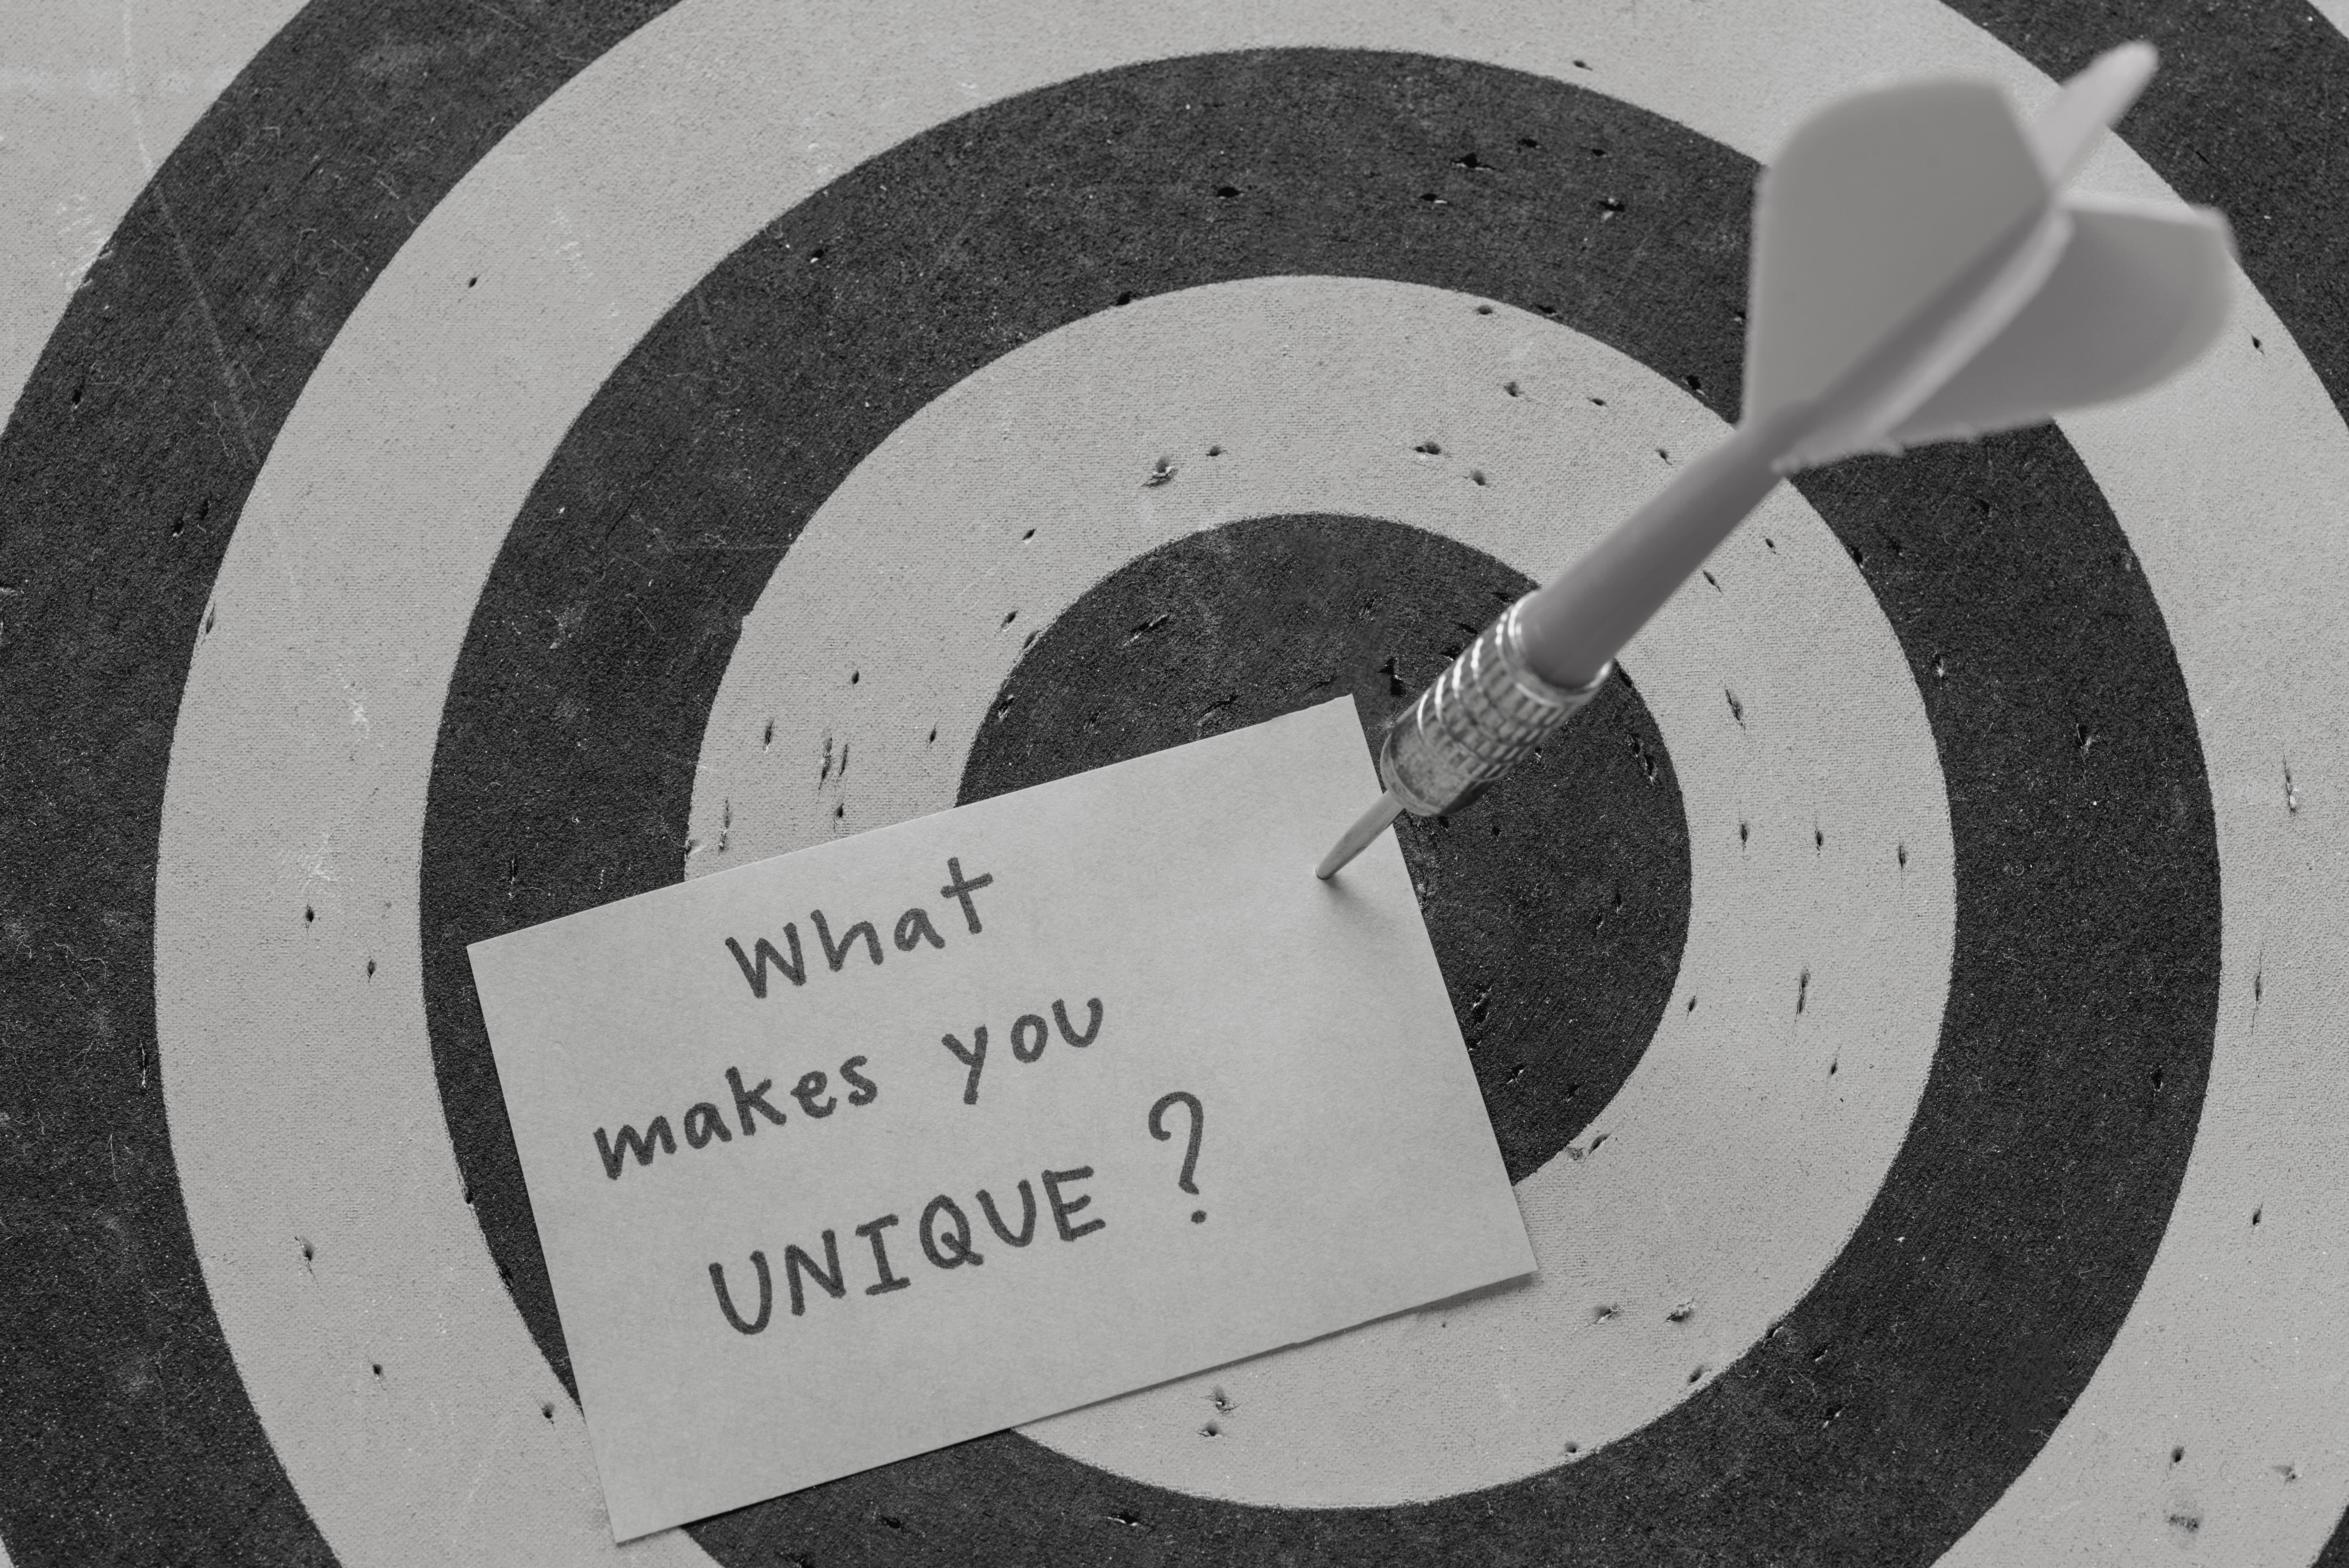 What
makes you
UNIQUE ?